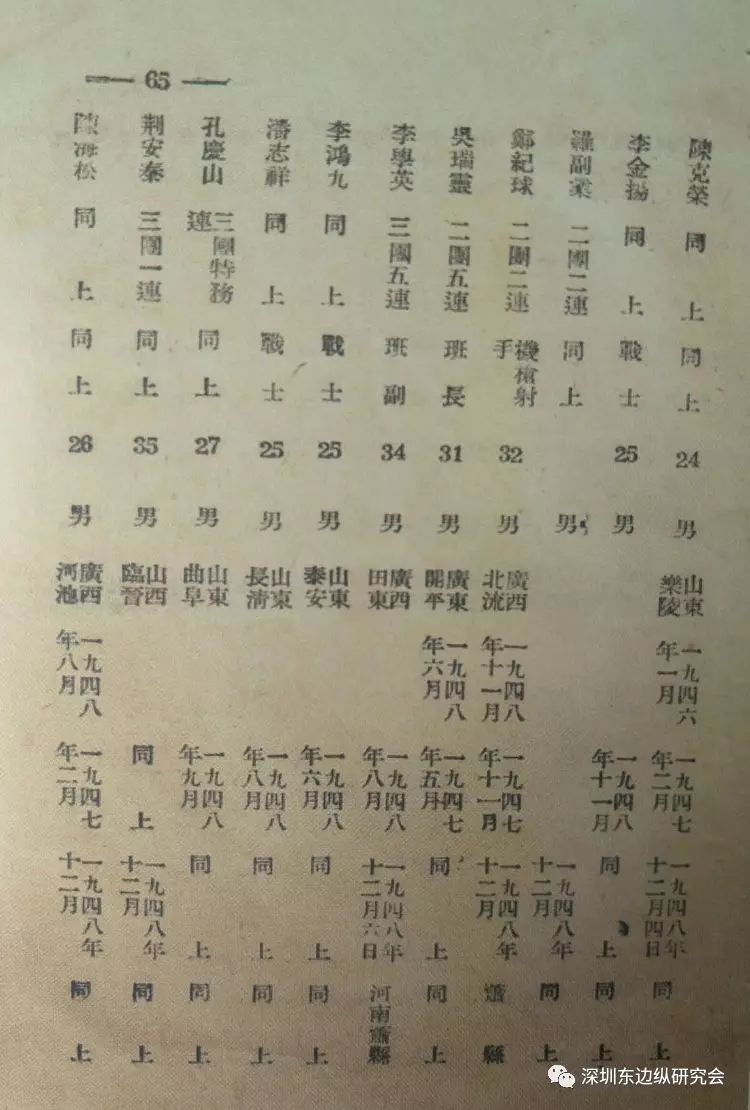 — 65 —
陳克榮 同上 同上 24 男 山東樂陵 一九四六年一月 一九四七年二月 一九四八年十二月四日 同上
李金揚 同上 戰士 25 男 一九四八年十一月 同上 同上
羅副業 二團二連 同上 男 一九四八年十二月 同上
鄭紀球 二團二連 機槍射手 32 男 廣西北流 一九四八年十一月 一九四七年十一月 一九四八年十二月 蕭縣
吳瑞靈 二團五連 班長 31 男 廣東開平 一九四八年六月 一九四七年五月 同上 同上
李學英 三團五連 班副 34 男 廣西田東 一九四八年八月 一九四八年十二月六日 河南蕭縣
李鴻九 同上 戰士 25 男 山東泰安 一九四八年六月 同上 同上
潘志祥 同上 戰士 25 男 山東長清 一九四八年八月 同上 同上
孔慶山 三團特務連 同上 27 男 山東曲阜 一九四八年九月 同上 同上
荆安泰 三團一連 同上 35 男 山西臨晉 同上 一九四八年十二月 同上
陳海松 同上 同上 26 男 廣西河池 一九四八年八月 一九四七年二月 一九四八年十二月 同上
深圳东边纵研究会